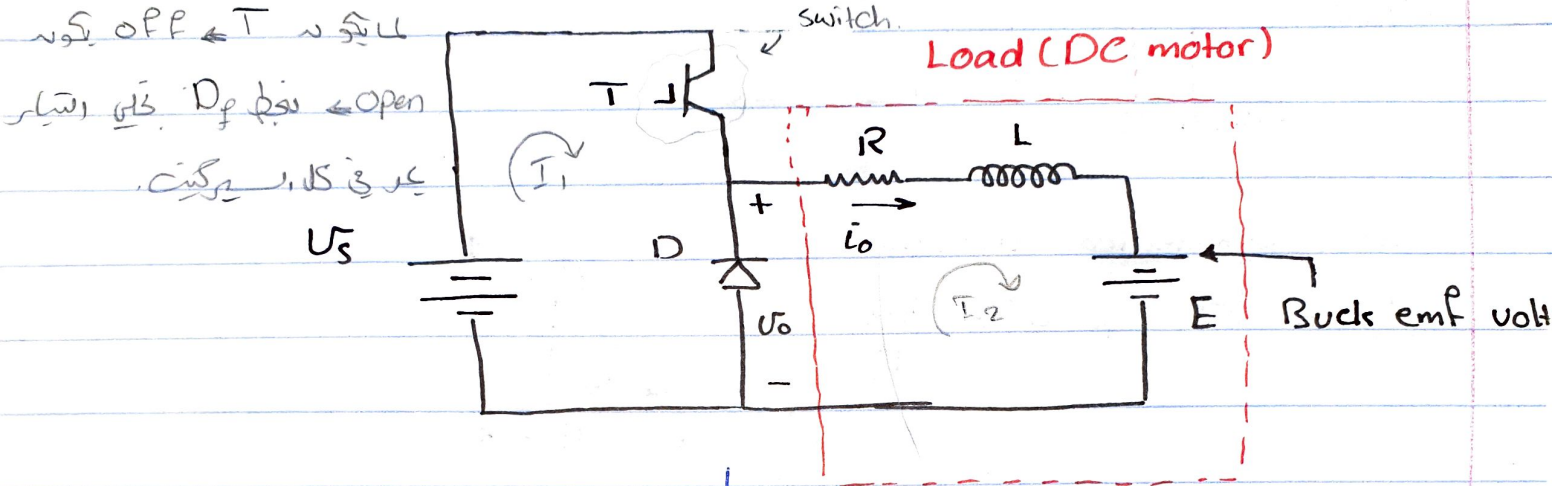 لما يكون T ← OFF يكون
Open ← نحط Df تخلي التيار
يمر في كل السيركيت.
switch.
Load (DC motor)
T
I1
R
L
+
io
Us
D
I2
Uo
E
Buck emf volt
−